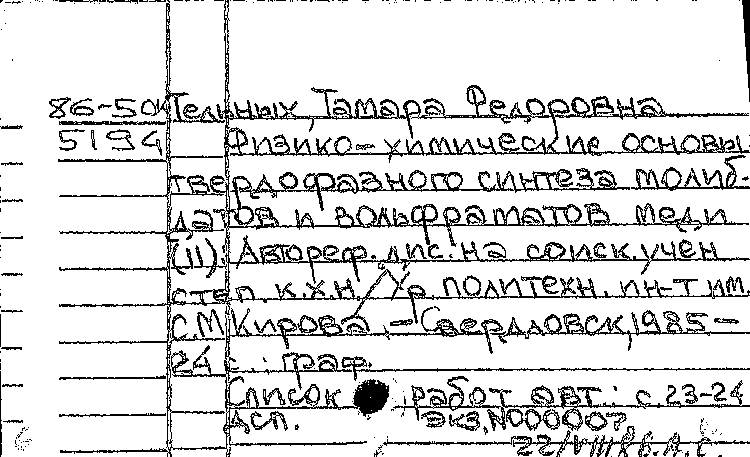 86-50к Тельных, Тамара Федоровна
5194 Физико-химические основы
твердофазного синтеза молиб-
датов и вольфраматов меди
(II): Автореф. дис. на соиск. учен
степ. к.х.н. / Ур политехн. ин-т им.
С.М Кирова. - Свердловск, 1985 -
24 с.: граф.
Список работ авт.: с. 23-24
Дсп. Экз. N000007
22/VIII 86. А.С.